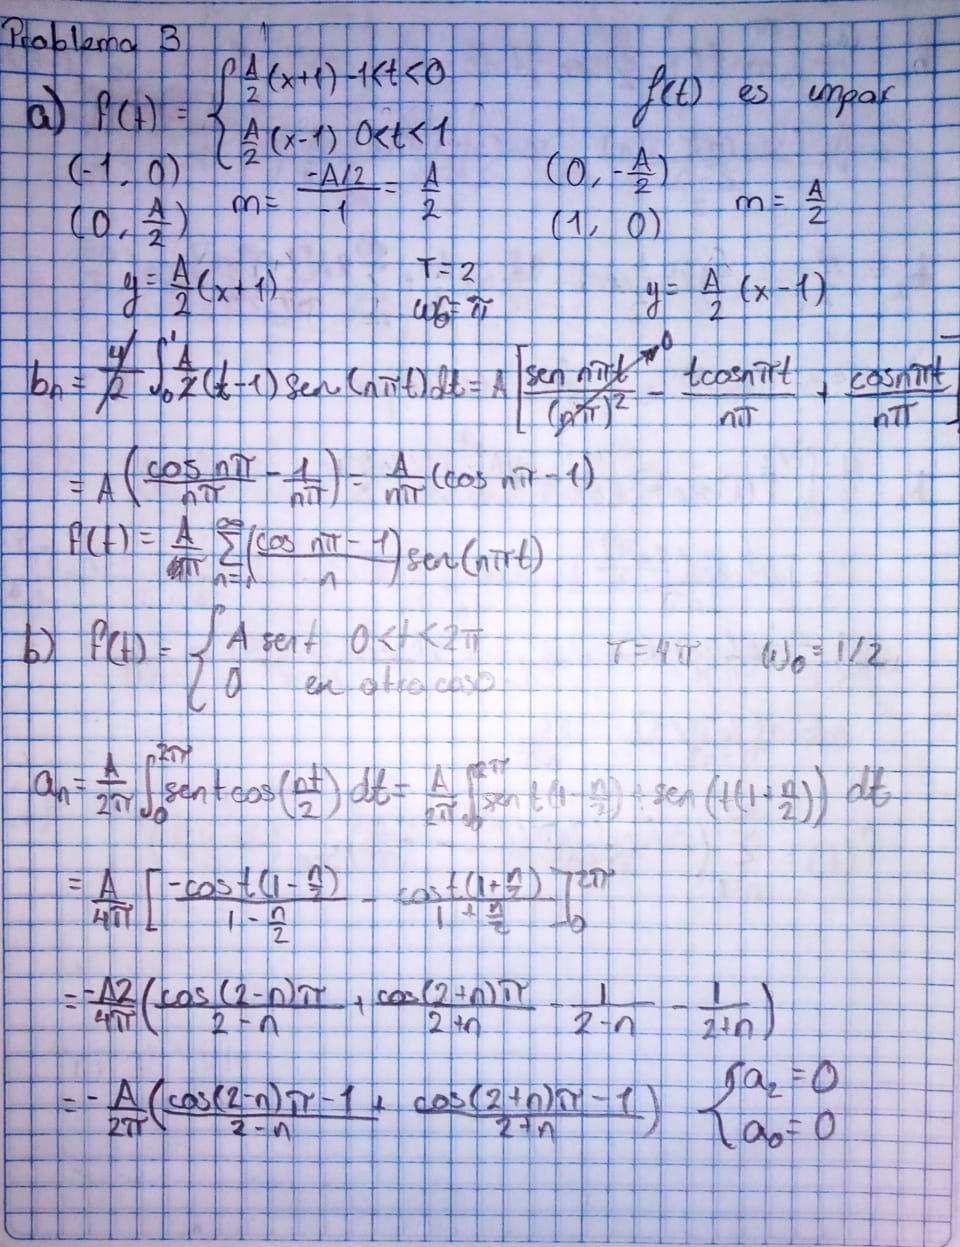 Problema 3
a) f(t) = { A/2 (x+1) -1<t<0
A/2 (x-1) 0<t<1
f(t) es impar
(-1, 0)
(0, A/2)
m= -A/2 / -1 = A/2
(0, -A/2)
(1, 0)
m= A/2
y= A/2 (x+1)
T=2
ω0=π
y= A/2 (x-1)
bn= 4/2 ∫₀¹ A/2 (t-1) sen(nπt)dt= A [ sen nπt/(nπ)² →0 - tcosnπt/nπ + cosnπt/nπ ]
= A ( cos nπ/nπ - 1/nπ ) = A/nπ (cos nπ-1)
f(t)= A/π ∑ n=1 ∞ ( cos nπ-1 / n ) sen(nπt)
b) f(t)= { A sent 0<t<2π
0 en otro caso
T=4π ω0=1/2
an= A/2π ∫₀²π sentcos(nt/2) dt= A/2π ∫₀²π sen t(1-n/2)+sen (t(1+n/2)) dt
= A/4π [ -cost(1-n/2) / 1-n/2 - cost(1+n/2) / 1+n/2 ]₀²π
= -A2/4π ( cos(2-n)π / 2-n + cos(2+n)π / 2+n - 1/2-n - 1/2+n )
= - A/2π ( cos(2-n)π-1 / 2-n + cos(2+n)π-1 / 2+n )
{ a2=0
a0=0